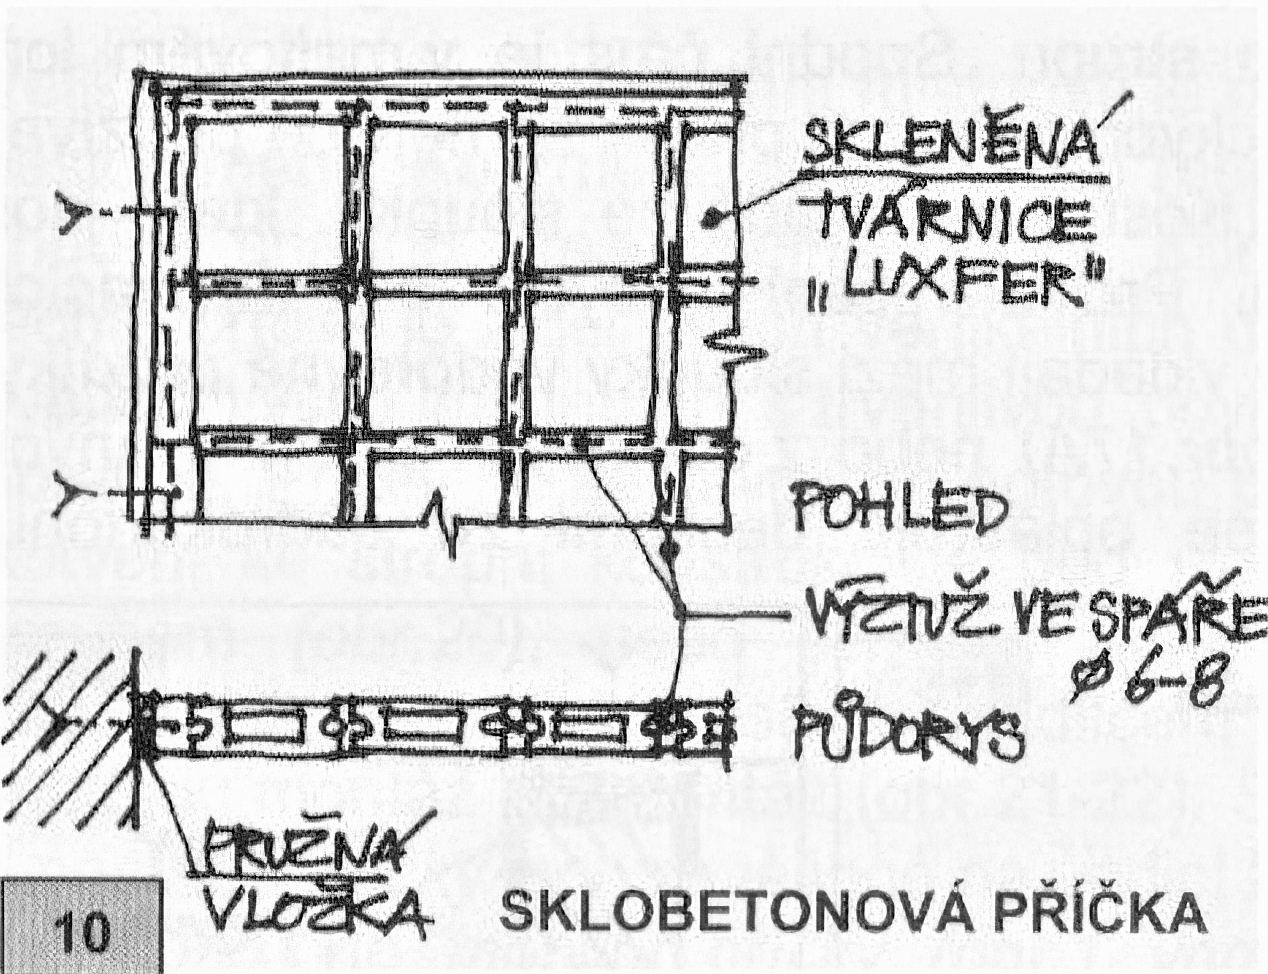 SKLENĚNÁ
TVÁRNICE
„LUXFER"
POHLED
VÝZTUŽ VE SPÁŘE
ø 6-8
PŮDORYS
PRUŽNÁ
VLOŽKA
10
SKLOBETONOVÁ PŘÍČKA